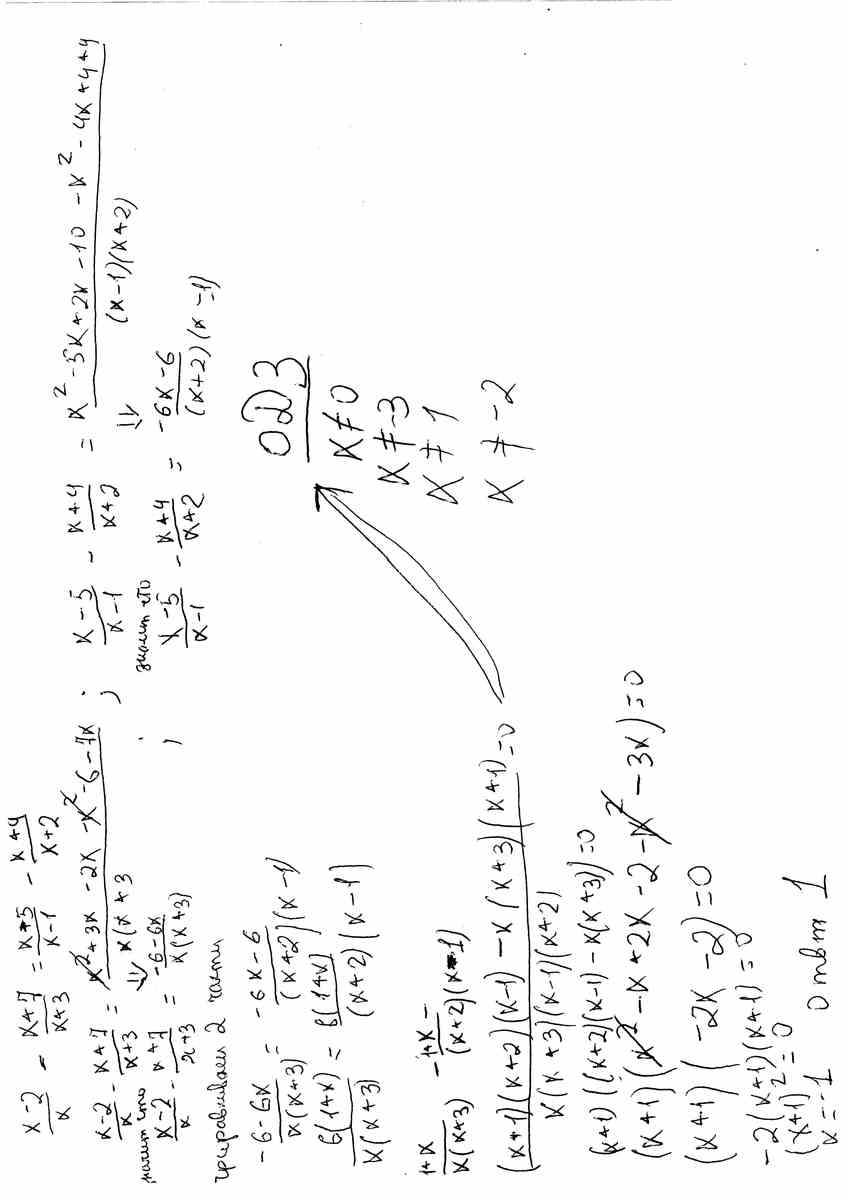 x-2/x - x+7/x+3 = x+5/x-1 - x+4/x+2
x-2/x - x+7/x+3 = x²+3x-2x-x²-6-7x/x(x+3 ; x-5/x-1 - x+4/x+2 = x²-5x+2x-10-x²-4x+4+4/(x-1)(x+2)
⇓ ⇓
значит что x-2/x - x+7/x+3 = -6-6x/x(x+3) ; значит что x-5/x-1 - x+4/x+2 = -6x-6/(x+2)(x-1)
приравниваем 2 части
-6-6x/x(x+3) = -6x-6/(x+2)(x-1)
6(1+x)/x(x+3) = 6(1+x)/(x+2)(x-1)
1+x/x(x+3) - 1+x/(x+2)(x-1)
(x+1)(x+2)(x-1)-x(x+3)(x+1)/x(x+3)(x-1)(x+2) =0
ОДЗ
x≠0
x≠-3
x≠1
x≠-2
(x+1)((x+2)(x-1)-x(x+3))=0
(x+1)(x²-x+2x-2-x²-3x)=0
(x+1)(-2x-2)=0
-2(x+1)(x+1)=0
(x+1)²=0
x=-1 Ответ 1